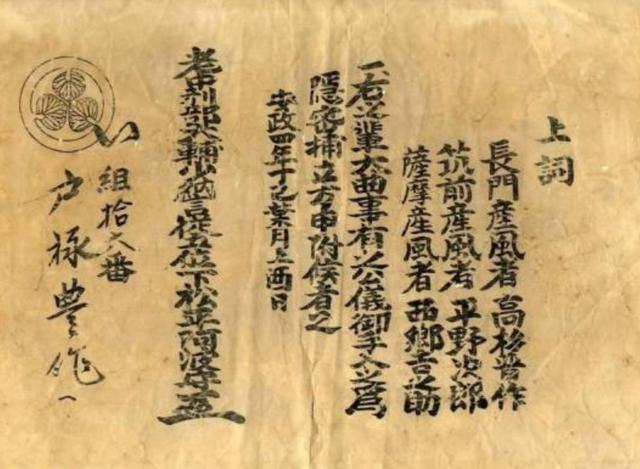 上詞
長門産風者 高杉晋作
筑前産風者 平野次郎
薩摩産風者 西郷吉之助
一右之輩大曲事有之公儀御手入之為
隠密補立方申附候者之
安政四年丁巳葉月上酉日
老中刑部大輔少納言従五位下松平阿波守
い組拾六番
戸禄豊作